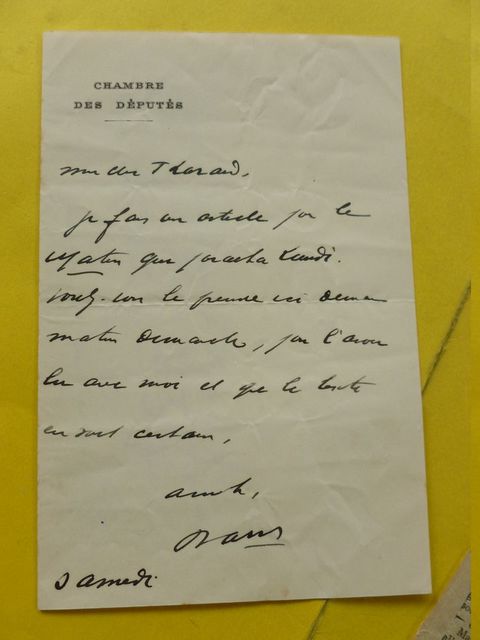 CHAMBRE
DES DÉPUTÉS
mon cher Tharaud,
je fais un article pour le
Matin que paraitra Lundi.
voulez-vous le prendre ici demain
matin Dimanche, pour l'avoir
lu avec moi et que le texte
en soit certain,
amitiés,
Barrès
Samedi